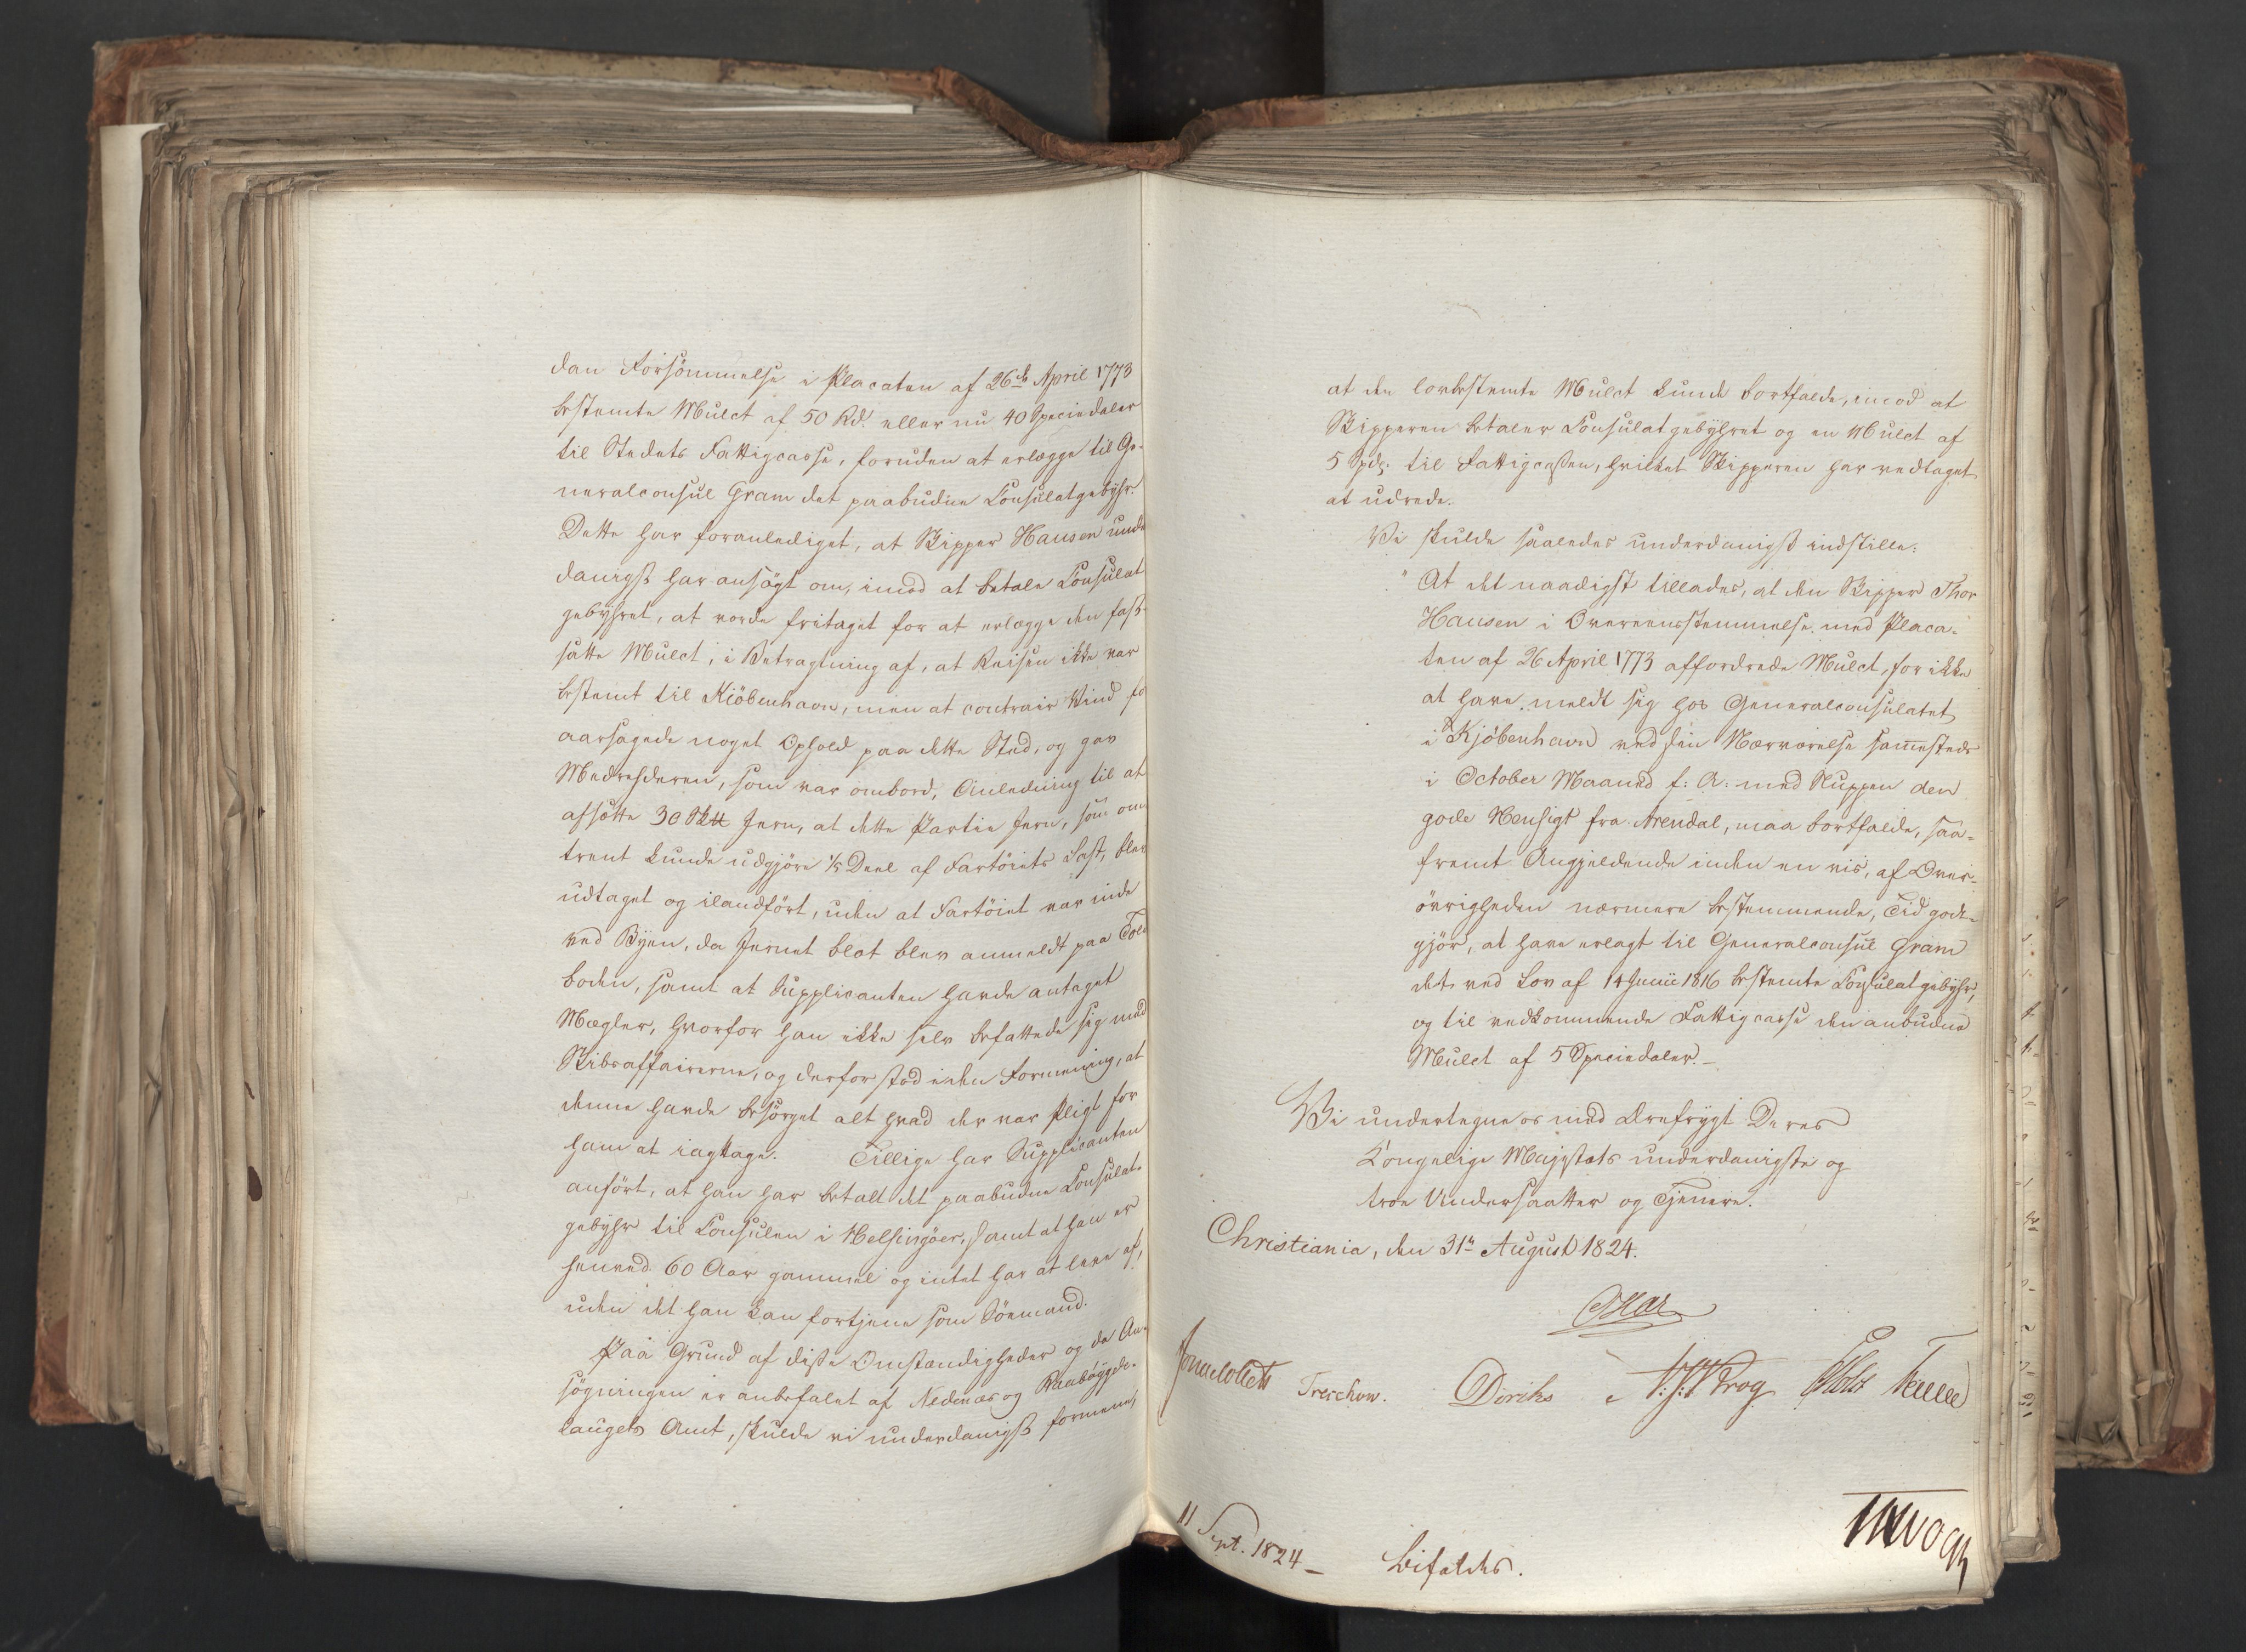 dan Forsömmelse i Placaten af 26de April 1773
bestemte Mulct af 50 Rd. eller nu 40 Speciedaler
til Stedets Fattigcasse, foruden at erlægge til Ge-
neralconsul Gram det paabudne Consulatgebyhr.
Dette har foranlediget, at Skipper Hansen unde
danigst har ansögt om, imod at betale Consulat
gebyhret, at vorde fritaget for at erlægge den fast-
satte Mulct, i Betragtning af, at Reisen ikke var
bestemt til Kiöbenhavn, men at contrair Vind fo
aarsagede noget Ophold paa dette Sted, og gav
Medrehderen, som var ombord, Anledning til at
afsætte 30 Sktt Jern, at dette Partie Jern, som om
trent kunde udgjöre 1/5 Deel af Fartöiets Last, blev
udtaget og ilandfört, uden at Fartöiet var inde
ved Byen, da Jernet blot blev anmeldt paa Told
boden, samt at Supplicanten havde antaget
Mægler, hvorfor han ikke selv befattede sig med
Skibsaffairerne, og derfor stod i den Formening, at
denne havde besörget alt hvad der var Pligt for
ham at iagttage. Tillige har Supplicanten
anfört, at han har betalt det paabudne Consulat-
gebyhr til Consulen i Helsingöer, samt at han er
henved 60 Aar gammel og intet har at leve af,
uden det han kan fortjene som Söemand.
Paa Grund af disse Omstændigheder og da An-
sögningen er anbefalet af Nedenæs og Raabögge-
laugets Amt, skulde vi underdanigst formene,
at den lovbestemte Mulct kunde bortfalde, imod at
Skipperen betaler Consulatgebyhret og en Mulct af
5 Spd. til Fattigcassen, hvilket Skipperen har vedtaget
at udrede.
Vi skulde saaledes underdanigst indstille:
" At det naadigst tillades, at den Skipper Thor
Hansen i Overeensstemmelse med Placa-
ten af 26 April 1773 affordrede Mulct, for ikke
at have meldt sig hos Generalconsulatet
i Kjöbenhavn ved sin Nærværelse sammesteds
i October Maaned f: A: med Sluppen den
gode Hensigt fra Arendal, maa bortfalde, saa-
fremt Angjeldende inden en vis, af Over-
övrigheden nærmere bestemmende, Tid godt-
gjör, at have erlagt til Generalconsul Gram
det ved Lov af 14 Junii 1816 bestemte Consulatgebyhr,
og til vedkommende Fattigcasse den anbudne
Mulct af 5 Speciedaler.-
Vi undertegne os med Ærefrygt Deres
Kongelige Majestæts underdanigste og
troe Undersaatter og Tjenere.
Christiania, den 31te August 1824.
Oscar
Jonas Collett Treschow. Diriks N. J. Krog Holst Fasting
11 Sept. 1824 - Bifaldes.